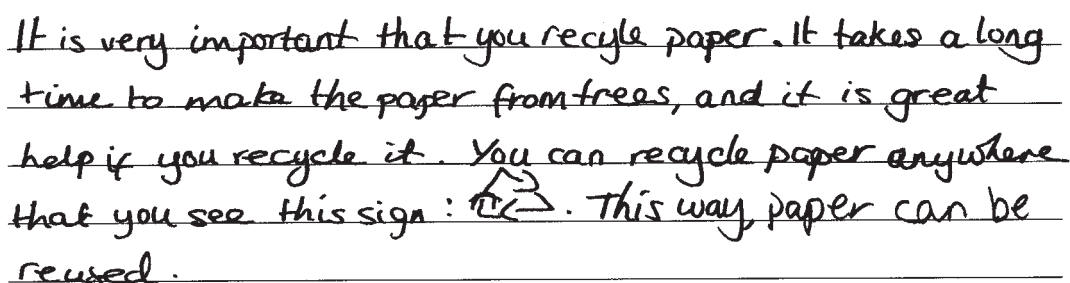 It is very important that you recyle paper. It takes a long
time to make the paper from trees, and it is great
help if you recycle it. You can recycle paper anywhere
that you see this sign : ♻. This way, paper can be
reused.